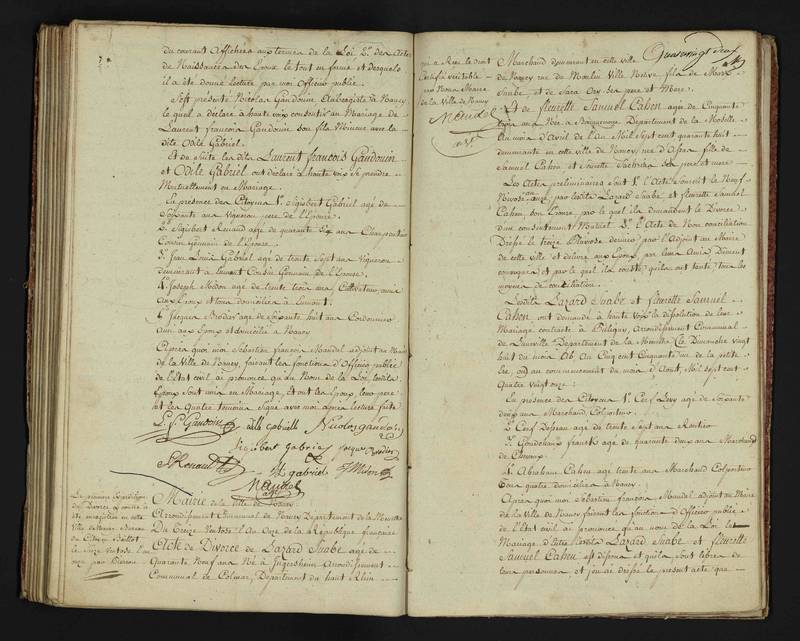 du courant Affichées aux termes de la Loi 2.° des Actes
de Naissances des Epoux le tout en forme et desquels
il a été donné lecture par moi Officier public.
Est présenté Nicolas Gaudouin Aubergiste à Nancy
le quel a déclaré à haute voix consentir au Mariage de
Laurent françois Gaudouin son fils Mineur avec la
dite Odile Gabriel.
Et de suite les dits Laurent françois Gaudouin
et Odile Gabriel ont déclaré à haute voix se prendre
Mutuellement en Mariage.
En présence des Citoyens 1.° Sigisbert Gabriel agé de
Soixante ans Vigneron père de l'Epouse.
2.° Sigisbert Renaud agé de quarante ans Charpentier
Cousin Germain de l'Epouse.
3.° Jean Louis Gabriel agé de trente Sept ans Vigneron
demeurant à Cousin Germain de l'Epouse.
4.° Joseph agé de trente trois ans Cultivateur ami
aux Epoux et domicilié à
Jacques agé de Soixante huit ans Cordonnier
Ami aux Epoux et domicilié à Nancy
Après quoi moi Sébastien françois Mandel adjoint au Maire
de la Ville de Nancy, faisant les fonctions d'Officier public
de l'Etat civil ai prononcé qu'au Nom de la Loi, lesdits
Epoux sont unis en Mariage, et ont les Epoux leurs pères
et les Quatre témoins signé avec moi après lecture faite
L. f. Gaudouin odille gabriell Nicolas gaudouin
Sigisbert Gabriel jacque
S Renaud gabriel J
Mandel
adjt
Mairie de la Ville de Nancy
Arrondissement Communal de Nancy Département de la Meurthe
Du Treize Ventose l'An Onze de la République française
Acte de Divorce de Lazard Suabe agé de
Quarante Neuf ans Né à Ingersheim Arrondissement
Communal de Colmar, Département du haut Rhin
La première Expédition
du Divorce ci contre a
été
Ville de Nancy
du Citoyen
le seize Ventose l'an
onze par
qui a Reçu le droit
Certifié véritable
par Nous Maire
de la Ville de Nancy
Mandel
adjt
Quatrevingt deux
Marchand demeurant en cette ville
de Nancy rue du Moulin Ville Neuve fils de Marc
Suabe et de Sara ses père et Mère.
Et de fleurette Samuel Cahen agée de Cinquante
ans Née à Département de la Moselle
au mois d'Avril de l'An Mil Sept cent quarante huit
demeurante en cette ville de Nancy rue fille de
Samuel Cahen et ses père et mère
Les Actes préliminaires sont 1.° l'Acte le Neuf
Nivose an onze par lesdits Lazard Suabe et fleurette Samuel
Cahen, son Epouse, par le quel ils demandent le Divorce
d'un consentement Mutuel 2.° l'Acte de Non conciliation
Dressé le treize Pluviose dernier par l'Adjoint au Maire
de cette ville et délivré aux Epoux par leurs Amis Dûment
convoqués et par le quel ils conste qu'ils ont tenté tous les
moyens de conciliation.
Lesdits Lazard Suabe et fleurette Samuel
Cahen ont demandé à haute Voix la dissolution de leur
Mariage contracté à Arrondissement Communal
de Lunéville Département de la Meurthe le Dimanche vingt
huit du mois Ab Au Cinq cent Cinquante un de la petite
Ere, ou au commencement du mois d'Aout, Mil sept cent
Quatre vingt onze:
En présence des Citoyens 1.° Cerf Levy agé de Soixante
ans Marchand Colporteur
2.° Cerf agé de trente sept ans Rentier
3.° Goudchaux franck agé de quarante deux ans Marchand
de Chevaux
4.° Abraham Cahen agé trente ans Marchand Colporteur
tous quatre domiciliés à Nancy.
Après quoi moi Sébastien françois Mandel adjoint au Maire
de la Ville de Nancy faisant les fonctions d'Officier public
de l'Etat civil ai prononcé qu'au nom de la Loi le
Mariage d'Entre lesdits Lazard Suabe et fleurette
Samuel Cahen est dissous et qu'ils sont libres de
leurs personnes et j'en ai dressé le présent acte que